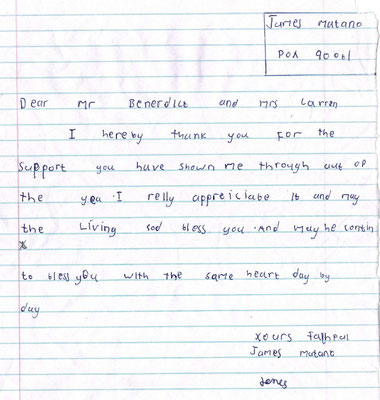 James Mutano
POX 90061
Dear Mr Benerdict and Mrs Larren
I hereby thank you for the
Support you have shown me through out of
the yea. I relly appreiciate it and may
the Living God bless you. And may he contin
to bless you with the same heart day by
day
Yours Faithful
James Mutano
James